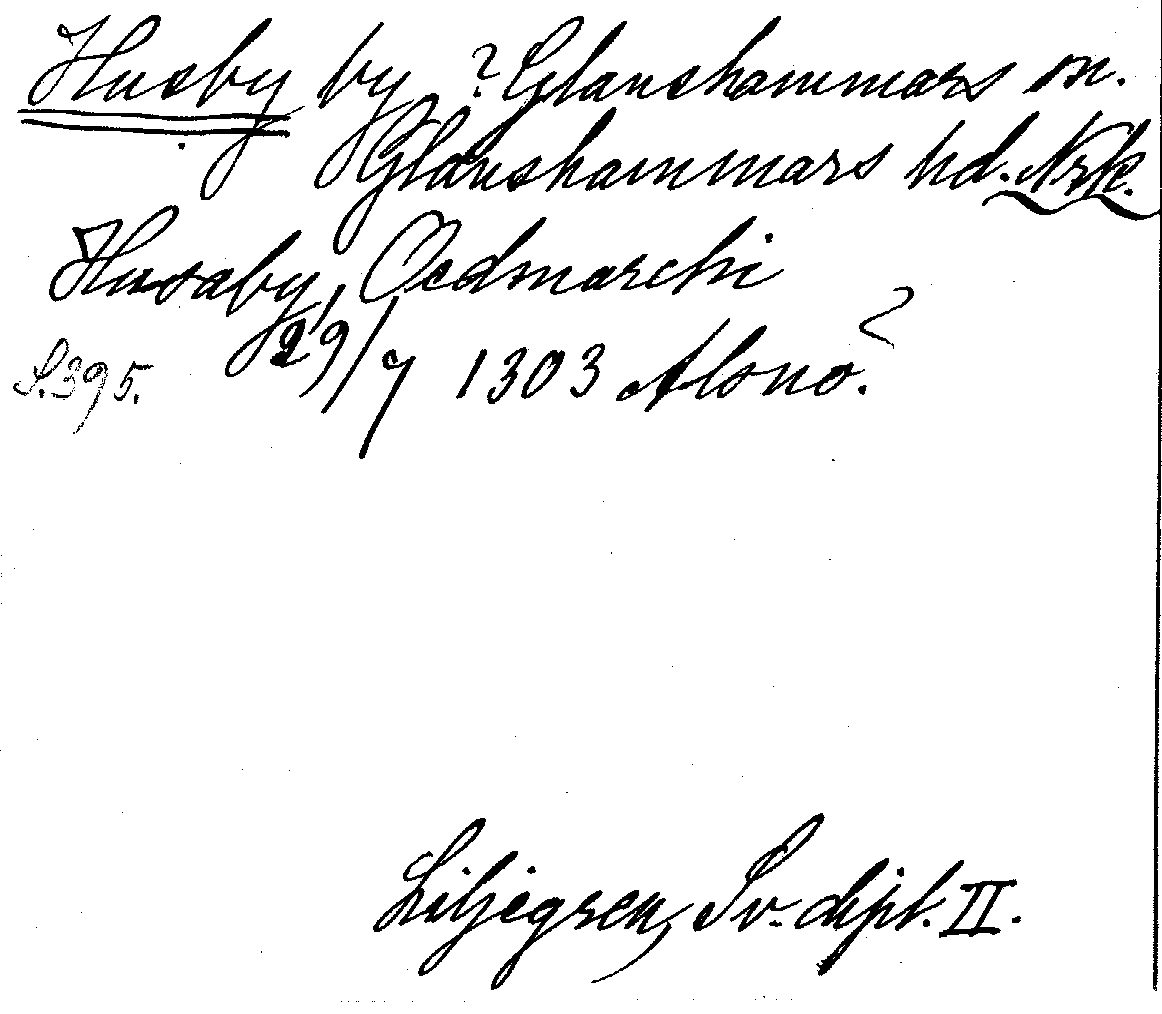 Husby by ? Glanshammars sn.
Glanshammars hd. Nrk.
Husaby, Oedmarchi
S. 395. 29/7 1303 Alsnö?.
Liljegren, Sv. dipl. II.